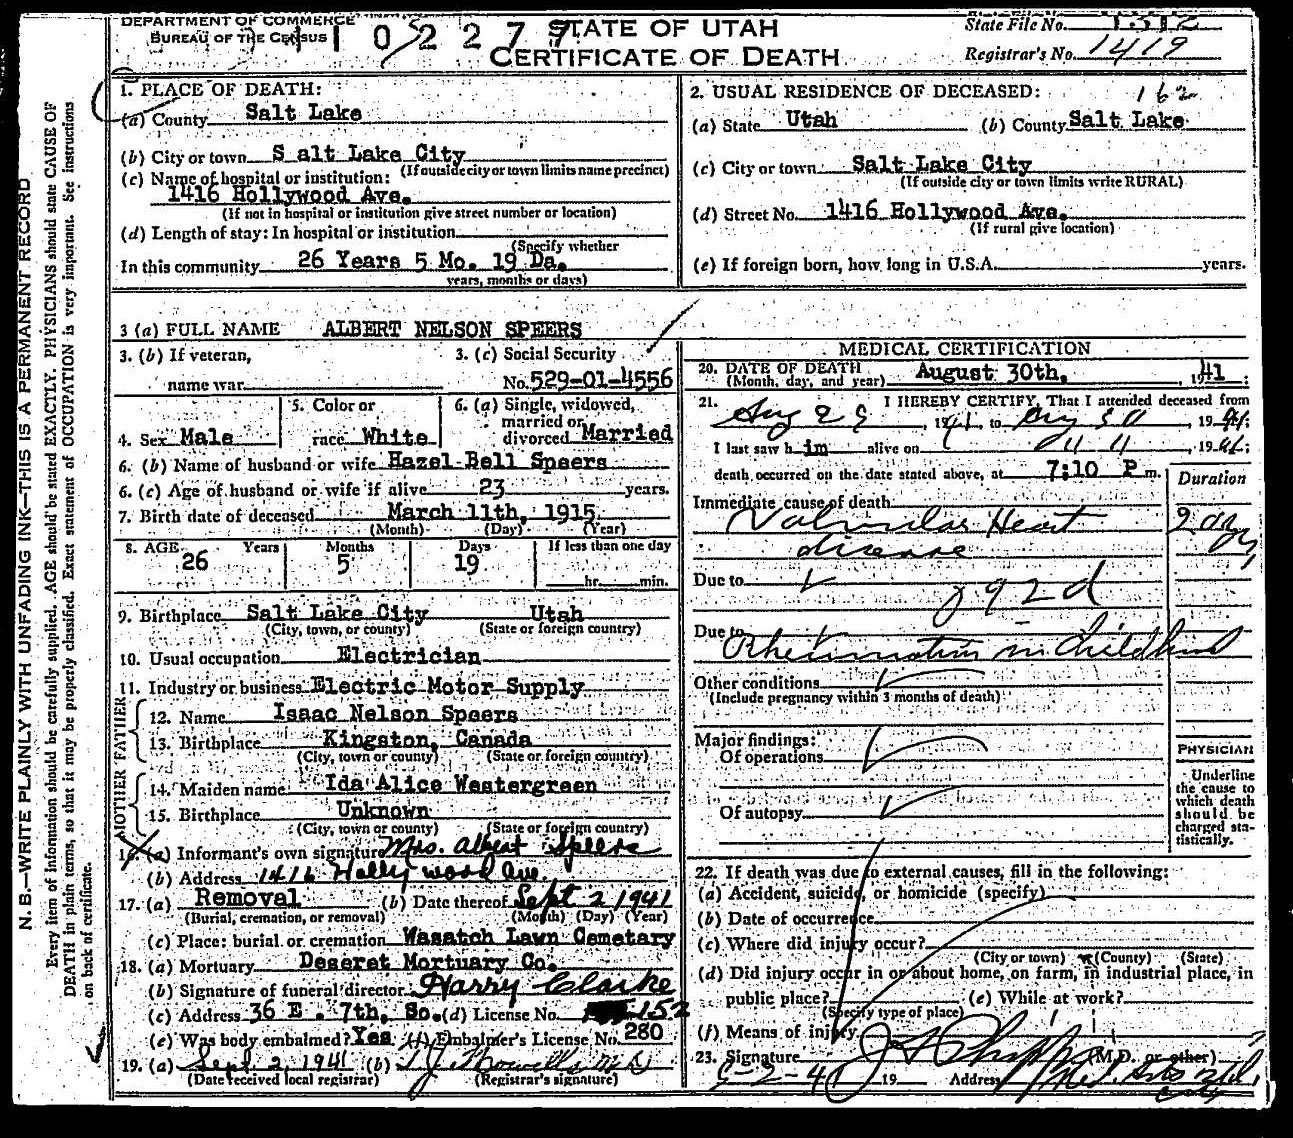 DEPARTMENT OF COMMERCE
BUREAU OF THE CENSUS
STATE OF UTAH
CERTIFICATE OF DEATH
State File No.
Registrar's No. 1419
1. PLACE OF DEATH:
(a) County Salt Lake
(b) City or town S alt Lake City
(If outside city or town limits name precinct)
(c) Name of hospital or institution:
1416 Hollywood Ave.
(If not in hospital or institution give street number or location)
(d) Length of stay: In hospital or institution
(Specify whether
In this community 26 Years 5 Mo. 19 Da.
years, months or days)
2. USUAL RESIDENCE OF DECEASED: 162
(a) State Utah (b) County Salt Lake
(c) City or town Salt Lake City
(If outside city or town limits write RURAL)
(d) Street No. 1416 Hollywood Ave.
(If rural give location)
(e) If foreign born, how long in U.S.A. years.
3 (a) FULL NAME ALBERT NELSON SPEERS
3. (b) If veteran,
name war
3. (c) Social Security
No. 529-01-4556
4. Sex Male
5. Color or
race White
6. (a) Single, widowed,
married or
divorced Married
6. (b) Name of husband or wife Hazel Bell Speers
6. (c) Age of husband or wife if alive 23 years.
7. Birth date of deceased March 11th, 1915
(Month) (Day) (Year)
8. AGE Years Months Days If less than one day
26 5 19
hr. min.
9. Birthplace Salt Lake City Utah
(City, town, or county) (State or foreign country)
10. Usual occupation Electrician
11. Industry or business Electric Motor Supply
FATHER
12. Name Isaac Nelson Speers
13. Birthplace Kingston, Canada
(City, town or county) (State or foreign country)
MOTHER
14. Maiden name Ida Alice Westergreen
15. Birthplace Unknown
(City, town or county) (State or foreign country)
16. (a) Informant's own signature Mrs. Albert Speers
(b) Address 1416 Hollywood Ave.
17. (a) Removal (b) Date thereof Sept 2 1941
(Burial, cremation, or removal) (Month) (Day) (Year)
(c) Place: burial or cremation Wasatch Lawn Cemetary
18. (a) Mortuary Deseret Mortuary Co.
(b) Signature of funeral director Harry Clarke
(c) Address 36 E. 7th, So. (d) License No. 152
(e) Was body embalmed? Yes (f) Embalmer's License No. 280
19. (a) Sept. 2, 1941 (b)
(Date received local registrar) (Registrar's signature)
MEDICAL CERTIFICATION
20. DATE OF DEATH
(Month, day, and year) August 30th, 1941;
21. I HEREBY CERTIFY, That I attended deceased from
Aug 29, 1941, to Aug 30, 1941;
I last saw him alive on " ", 1941;
death occurred on the date stated above, at 7:10 P m.
Duration
Immediate cause of death
Valvular Heart
disease
Due to 92d
Due to
Rheumatism in Childhood
Other conditions
(Include pregnancy within 3 months of death)
Major findings:
Of operations
Of autopsy
PHYSICIAN
Underline
the cause to
which death
should be
charged sta-
tistically.
22. If death was due to external causes, fill in the following:
(a) Accident, suicide, or homicide (specify)
(b) Date of occurrence
(c) Where did injury occur?
(City or town) (County) (State)
(d) Did injury occur in or about home, on farm, in industrial place, in
public place? (e) While at work?
(Specify type of place)
(f) Means of injury
23. Signature (M.D. or other)
9-2-41 19 Address
N. B.—WRITE PLAINLY WITH UNFADING INK—THIS IS A PERMANENT RECORD
Every item of information should be carefully supplied. AGE should be stated EXACTLY. PHYSICIANS should state CAUSE OF
DEATH in plain terms, so that it may be properly classified. Exact statement of OCCUPATION is very important. See instructions
on back of certificate.